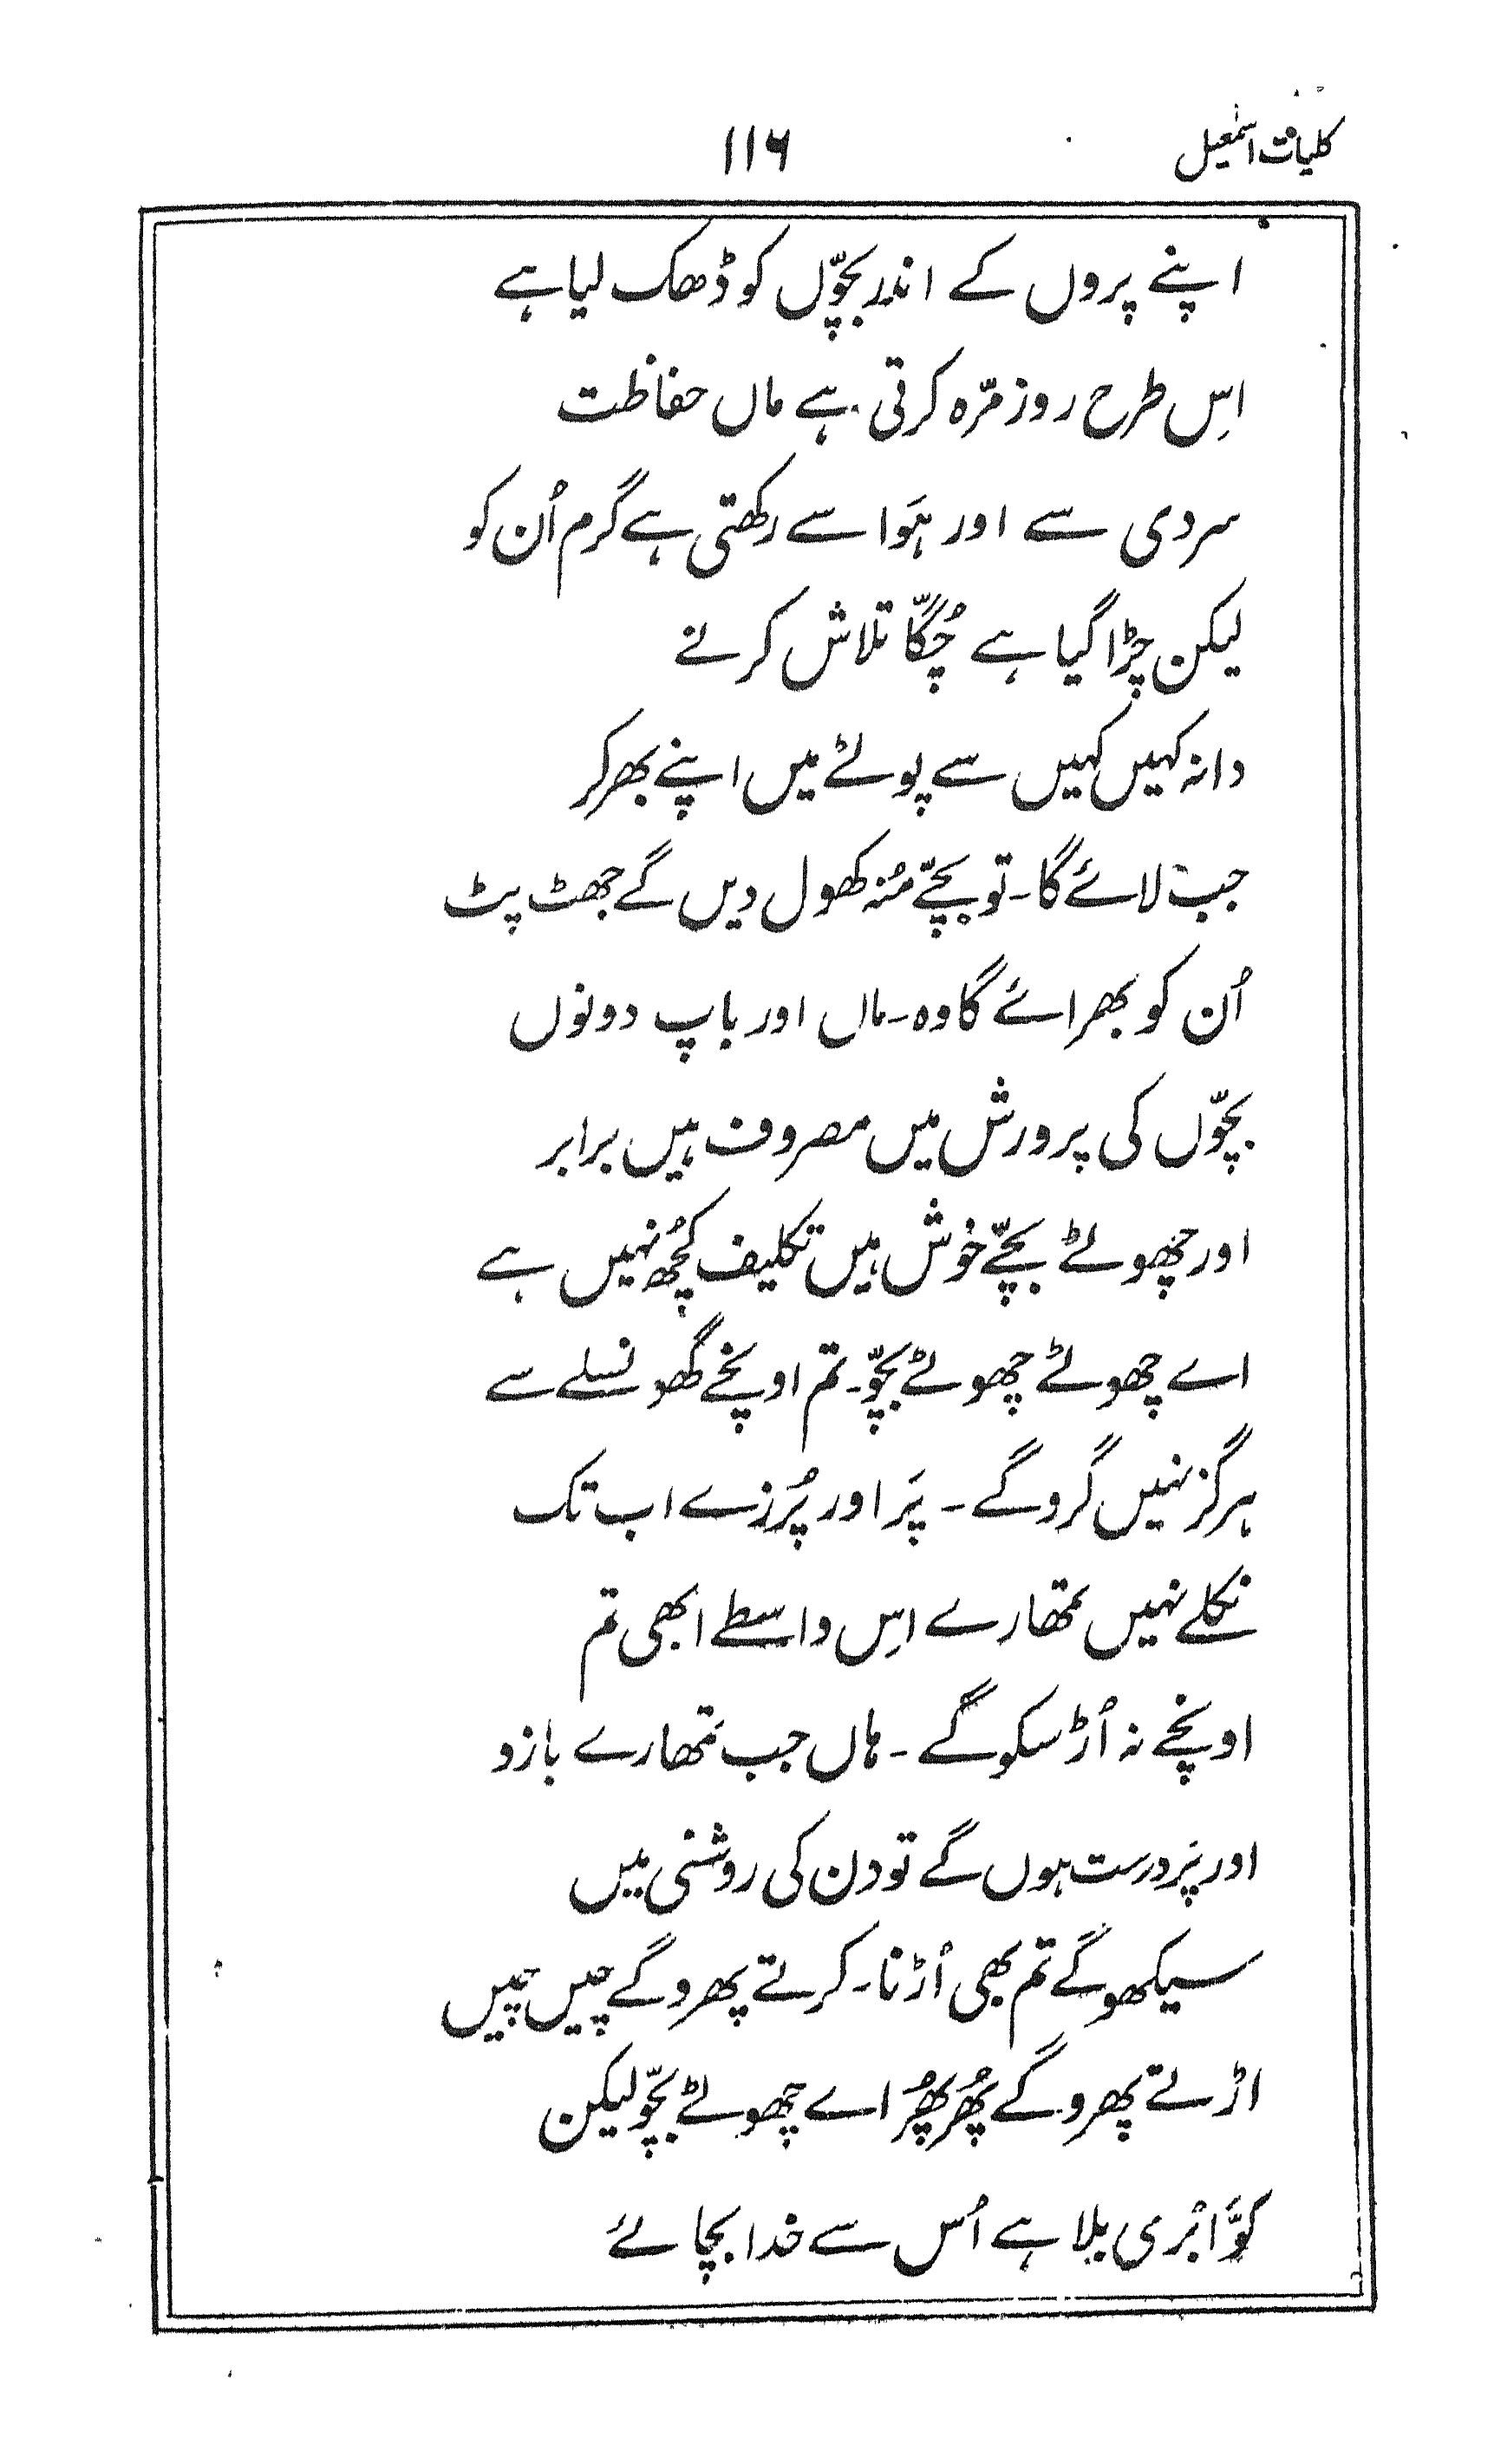 کلیات اسمٰعیل
۱۱۶
اپنے پروں کے اندر بچّوں کو ڈھک لیا ہے
اِس طرح روز مرّہ کرتی ہے ماں حفاظت
سردی سے اور ہَوا سے رکھتی ہے گرم اُن کو
لیکن چڑا گیا ہے چُگّا تلاش کرنے
دانہ کہیں کہیں سے پوٹے میں اپنے بھر کر
جب لائے گا۔ تو بچّے مُنہ کھول دیں گے جھٹ پٹ
اُن کو بھرائے گا وہ۔ ماں اور باپ دونوں
بچّوں کی پرورش میں مصروف ہیں برابر
اور چھوٹے بچّے خوش ہیں تکلیف کچُھ نہیں ہے
اے چھوٹے چھوٹے بچّو۔ تم اونچے گھونسلے سے
ہرگز نہیں گرو گے۔ پَر اور پُرزے اب تک
نکلے نہیں تمھارے اِس واسطے ابھی تم
اونچے نہ اُڑ سکو گے۔ ہاں جب تمھارے بازو
اور پَر درست ہوں گے تو دن کی روشنی میں
سیکھو گے تم بھی اُڑنا۔ کرتے پھرو گے چیں چیں
اڑتے پھرو گے پُھر پُھر اے چھوٹے بچّو لیکن
کوَّا بُری بلا ہے اُس سے خدا بچائے